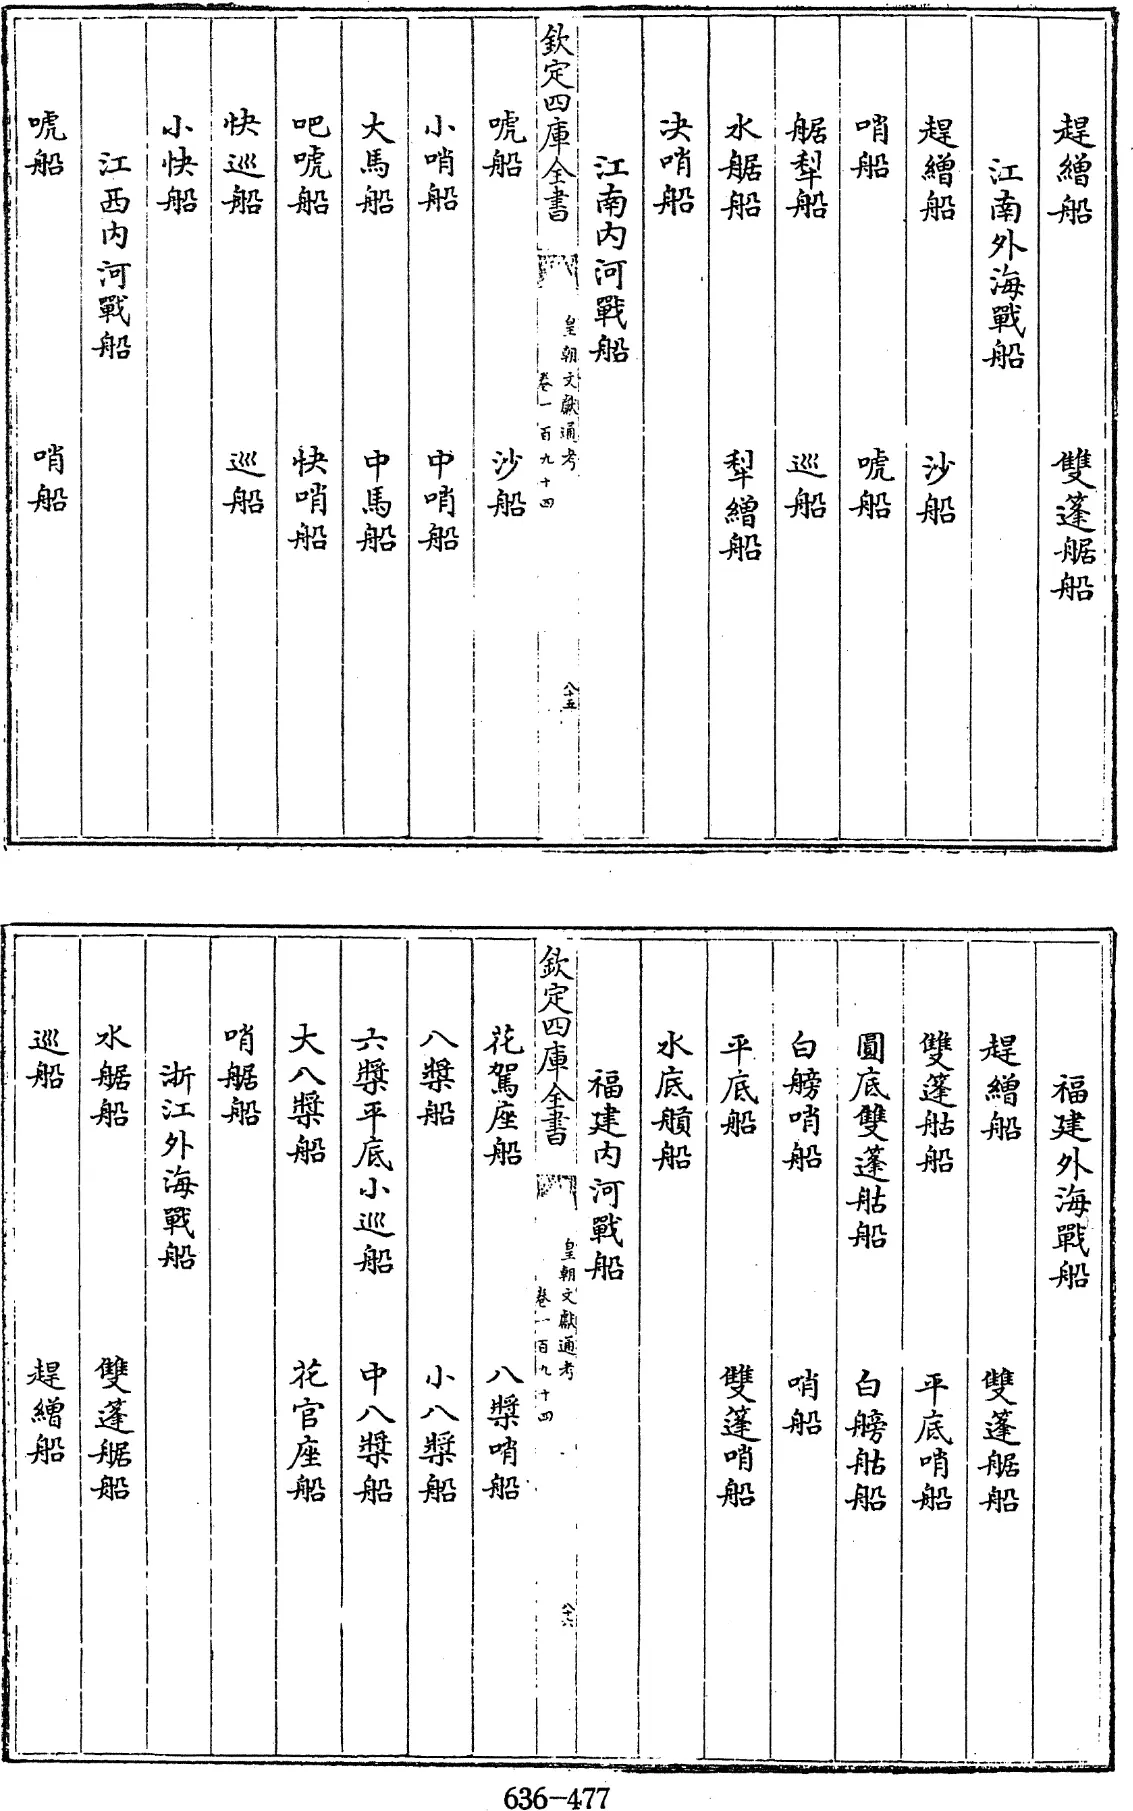 趕繒船　雙蓬艍船
江南外海戰船
趕繒船　沙船
哨船　唬船
艍犁船　巡船
水艍船　犁繒船
決哨船
江南内河戰船
欽定四庫全書
皇朝文獻通考
卷一百九十四
八十五
唬船　沙船
小哨船　中哨船
大馬船　中馬船
吧唬船　快哨船
快巡船　巡船
小快船
江西内河戰船
唬船　哨船
福建外海戰船
趕繒船　雙蓬艍船
雙蓬䑩船　平底哨船
圓底雙蓬䑩船　白艕䑩船
白艕哨船　哨船
平底船　雙蓬哨船
水底䑯船
福建内河戰船
欽定四庫全書
皇朝文獻通考
卷一百九十四
八十六
花駕座船　八槳哨船
八槳船　小八槳船
六槳平底小巡船　中八槳船
大八槳船　花官座船
哨艍船
浙江外海戰船
水艍船　雙蓬艍船
巡船　趕繒船
636-477